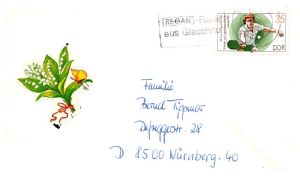 REGAN
aus Glaucha
35
DDR
Familie
Bernd Tippmar
Defreggerstr. 28
D 8500 Nürnberg-40